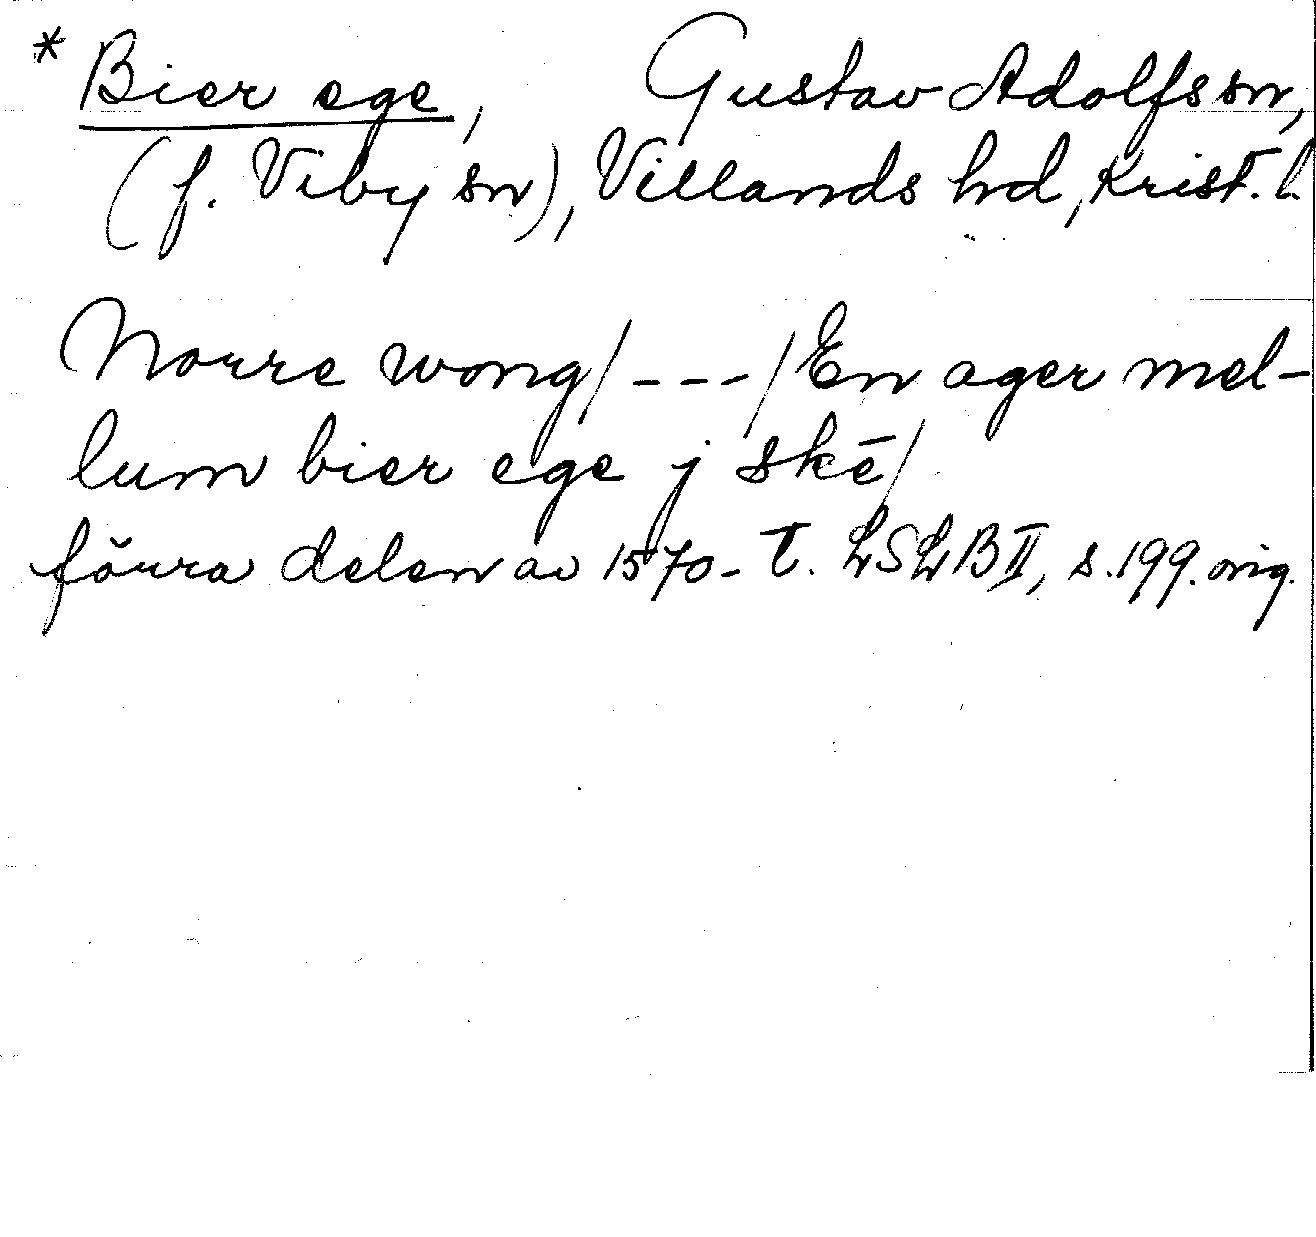 * Bier ege, Gustav Adolfs sn,
(f. Viby sn), Villands hd, Krist. l.
Norre wong/---/En ager mel-
lum bier ege j skē/
förra delen av 1570-t. LSLB II, s. 199. orig.